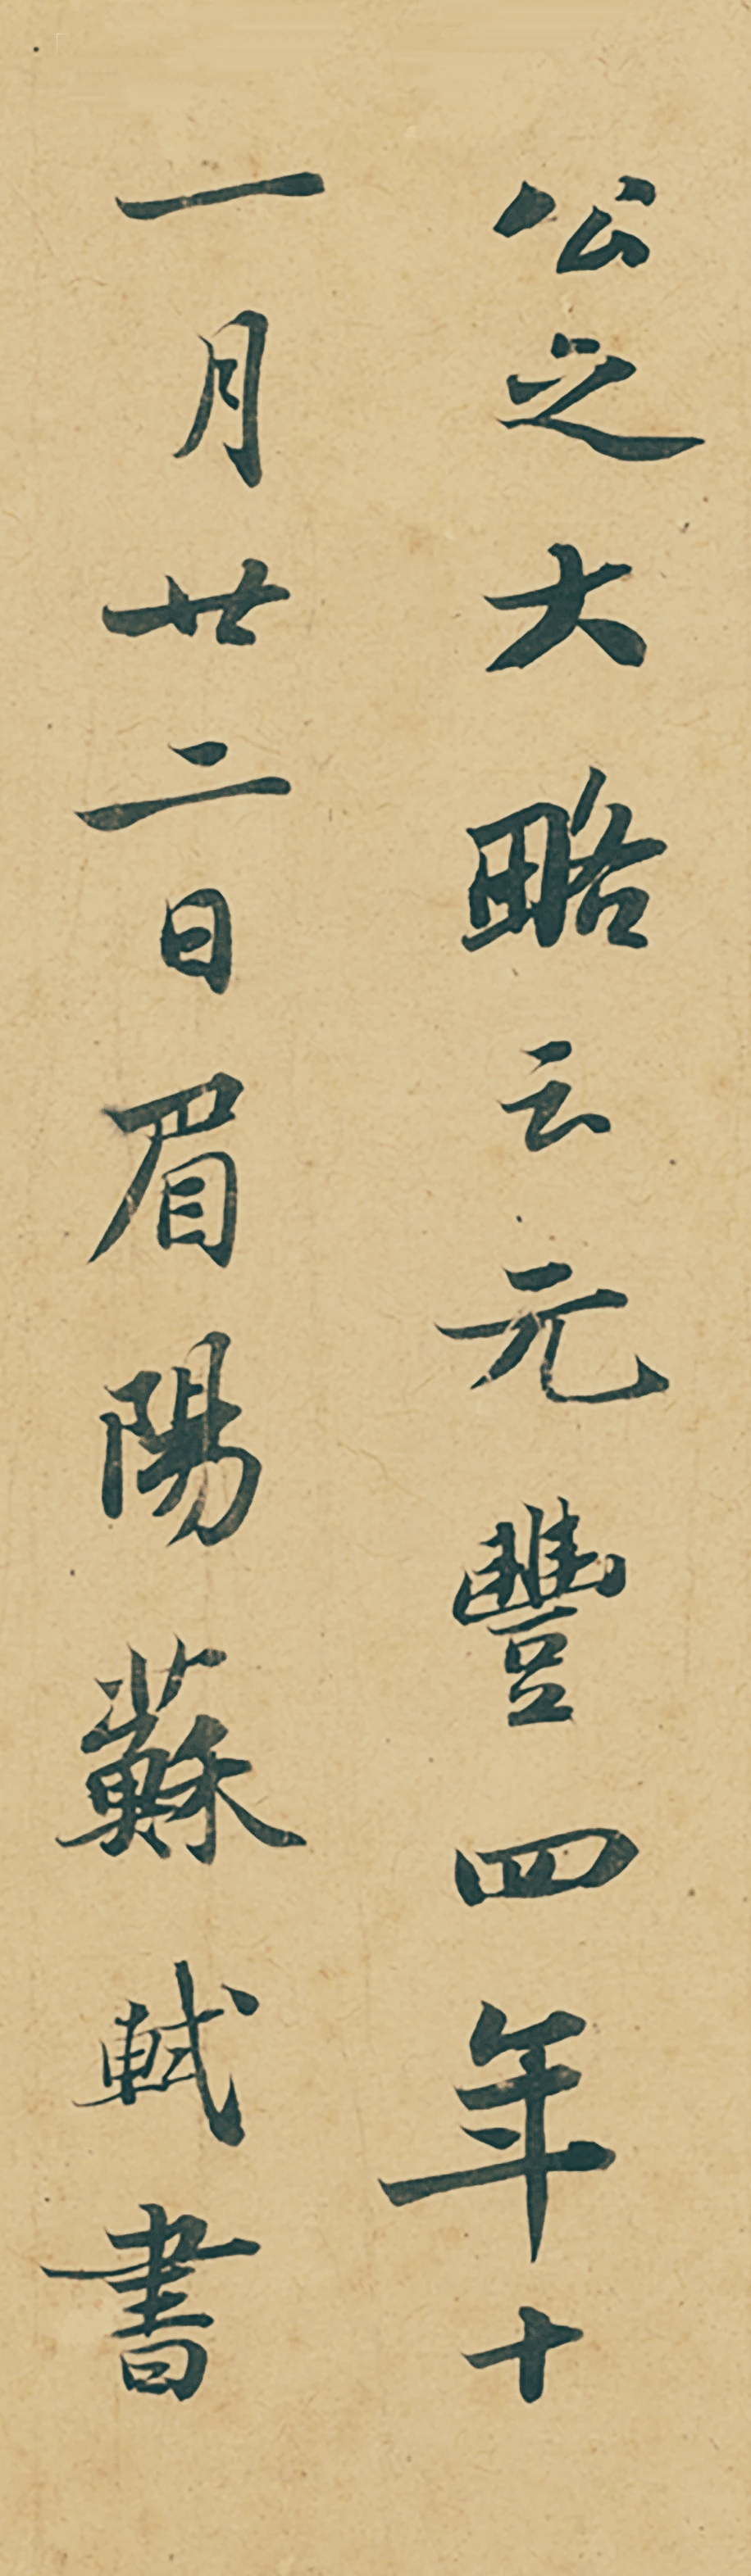 公之大略云元豐四年十
一月廿二日眉陽蘇軾書